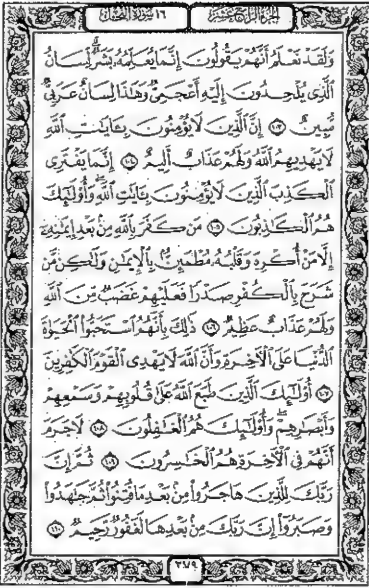 الجزء الرابع عشر ١٦ سورة النحل
وَلَقَدْ نَعْلَمُ أَنَّهُمْ يَقُولُونَ إِنَّمَا يُعَلِّمُهُۥ بَشَرٌ ۗ لِّسَانُ
ٱلَّذِى يُلْحِدُونَ إِلَيْهِ أَعْجَمِىٌّ وَهَٰذَا لِسَانٌ عَرَبِىٌّ
مُّبِينٌ ١٠٣ إِنَّ ٱلَّذِينَ لَا يُؤْمِنُونَ بِـَٔايَٰتِ ٱللَّهِ
لَا يَهْدِيهِمُ ٱللَّهُ وَلَهُمْ عَذَابٌ أَلِيمٌ ١٠٤ إِنَّمَا يَفْتَرِى
ٱلْكَذِبَ ٱلَّذِينَ لَا يُؤْمِنُونَ بِـَٔايَٰتِ ٱللَّهِ ۖ وَأُو۟لَٰٓئِكَ
هُمُ ٱلْكَٰذِبُونَ ١٠٥ مَن كَفَرَ بِٱللَّهِ مِنۢ بَعْدِ إِيمَٰنِهِۦٓ
إِلَّا مَنْ أُكْرِهَ وَقَلْبُهُۥ مُطْمَئِنٌّۢ بِٱلْإِيمَٰنِ وَلَٰكِن مَّن
شَرَحَ بِٱلْكُفْرِ صَدْرًا فَعَلَيْهِمْ غَضَبٌ مِّنَ ٱللَّهِ
وَلَهُمْ عَذَابٌ عَظِيمٌ ١٠٦ ذَٰلِكَ بِأَنَّهُمُ ٱسْتَحَبُّوا۟ ٱلْحَيَوٰةَ
ٱلدُّنْيَا عَلَى ٱلْءَاخِرَةِ وَأَنَّ ٱللَّهَ لَا يَهْدِى ٱلْقَوْمَ ٱلْكَٰفِرِينَ
١٠٧ أُو۟لَٰٓئِكَ ٱلَّذِينَ طَبَعَ ٱللَّهُ عَلَىٰ قُلُوبِهِمْ وَسَمْعِهِمْ
وَأَبْصَٰرِهِمْ ۖ وَأُو۟لَٰٓئِكَ هُمُ ٱلْغَٰفِلُونَ ١٠٨ لَا جَرَمَ
أَنَّهُمْ فِى ٱلْءَاخِرَةِ هُمُ ٱلْخَٰسِرُونَ ١٠٩ ثُمَّ إِنَّ
رَبَّكَ لِلَّذِينَ هَاجَرُوا۟ مِنۢ بَعْدِ مَا فُتِنُوا۟ ثُمَّ جَٰهَدُوا۟
وَصَبَرُوٓا۟ إِنَّ رَبَّكَ مِنۢ بَعْدِهَا لَغَفُورٌ رَّحِيمٌ ١١٠
٢٧٩